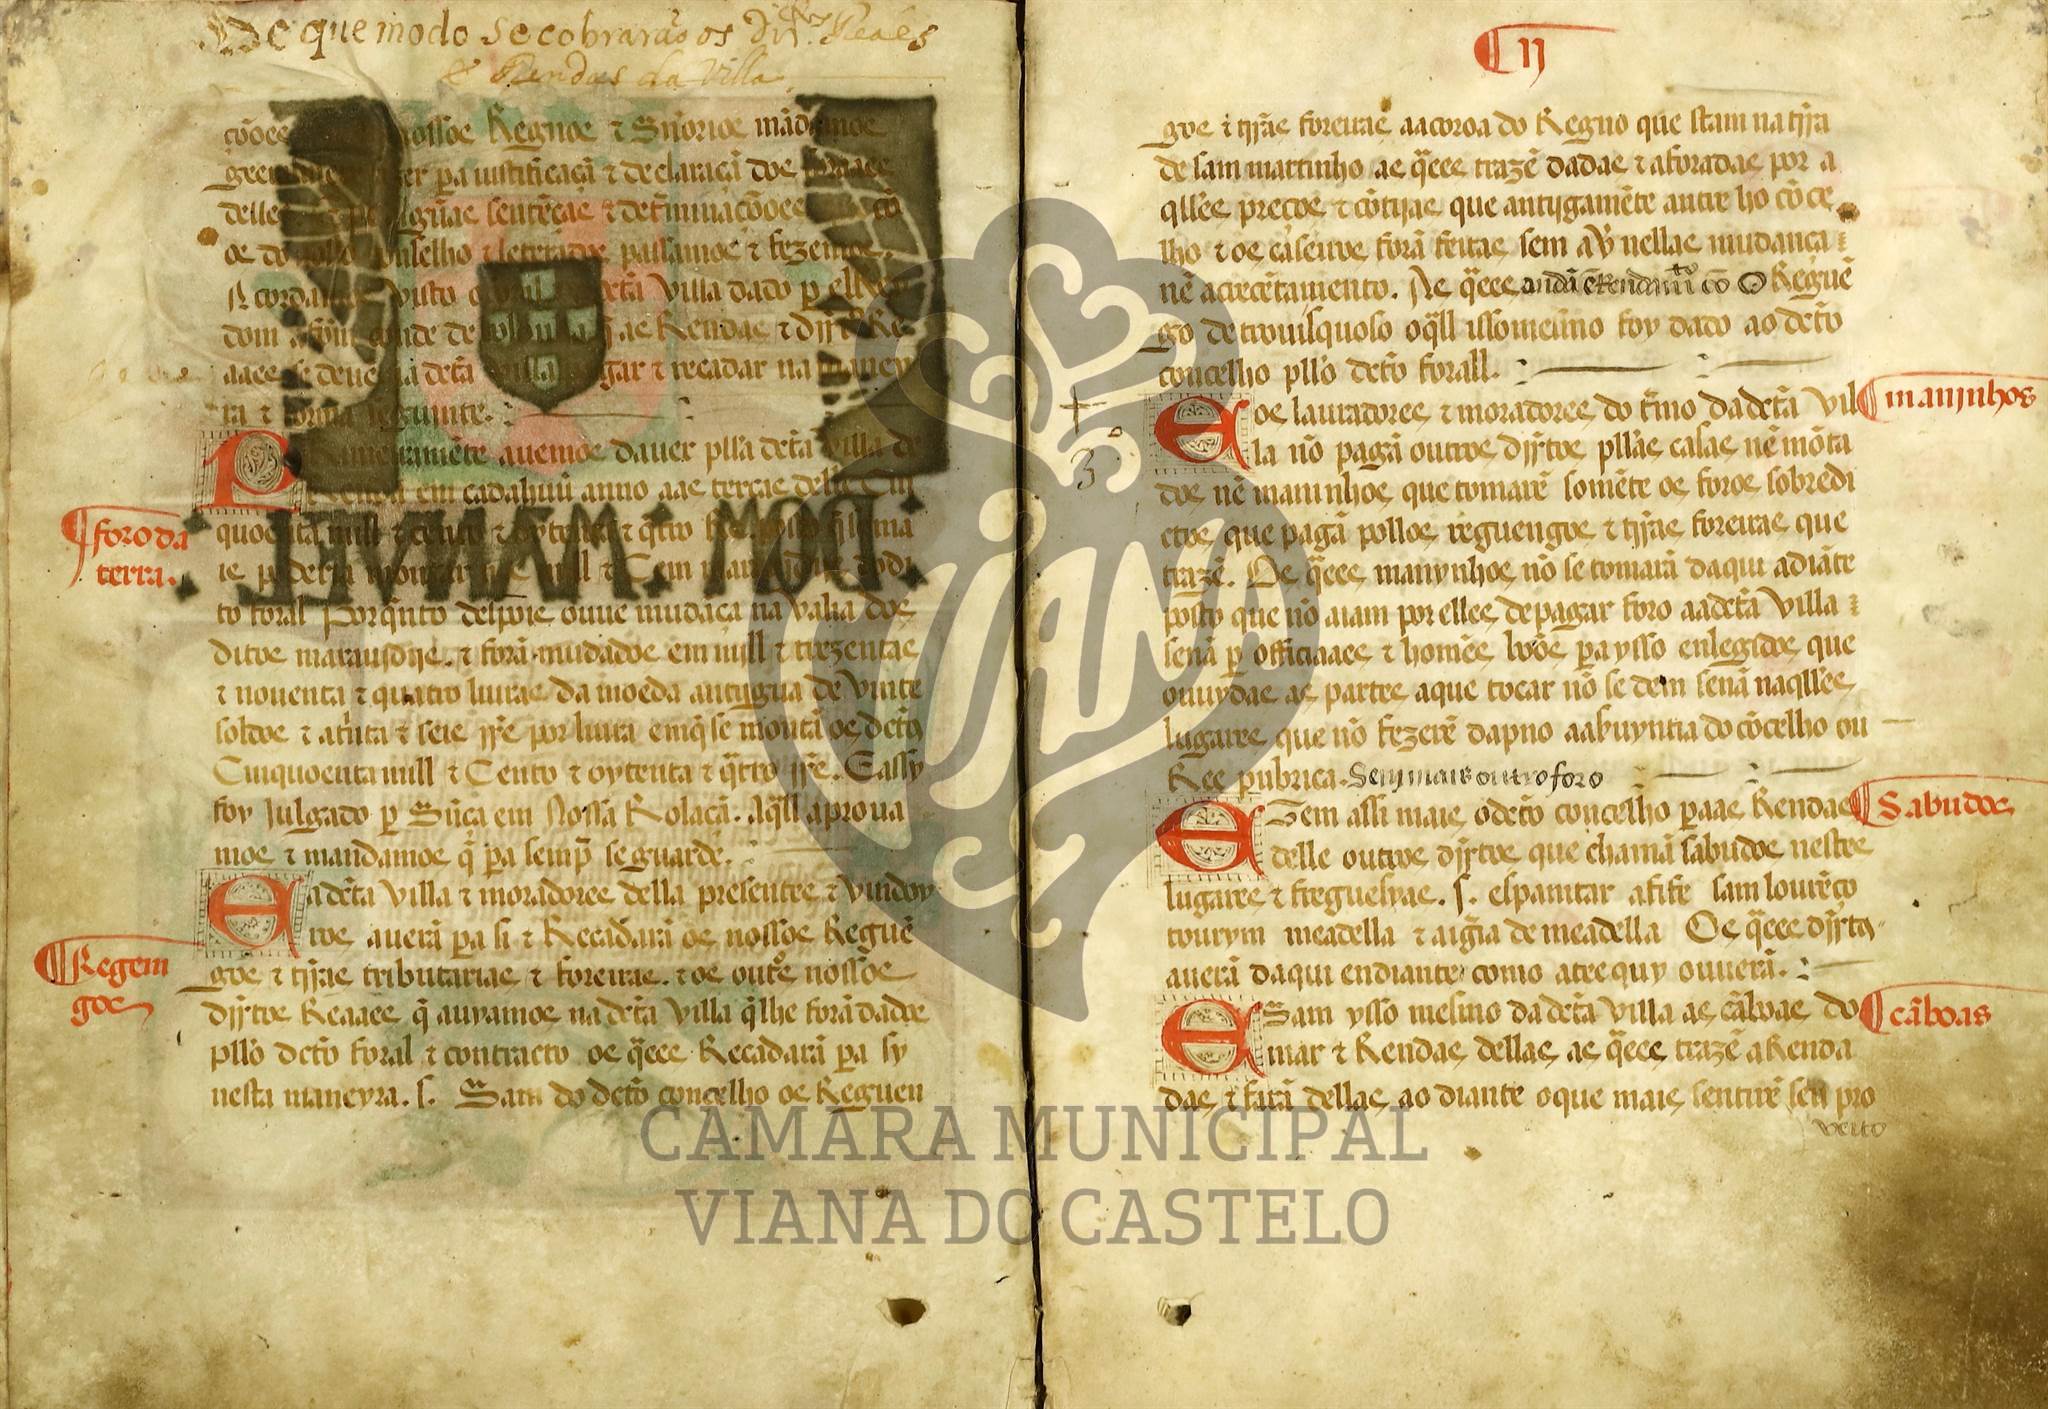 De que modo se cobrarão os Dir.tos Reaes
& Rendas da Villa.
çõoes nossos Regnos & Snõrios mãdamos
fazer pa iustificaçã & declaraçã dos foraaes
delles algũas sentẽças & detmĩnaçõoes
os do nosso conselho & leterados passamos & fezemos.
Acordamos visto o foral da detã villa dado p ell Rey
dom afõm conde de bolonha q as Rendas & djrtos Re
aaes se deuem na detã villa pagar & recadar na maney
ra & forma seguinte.
Primeiramẽte auemos dauer plla detã villa de
em cadahuũ anno aas terças delle Cin
quoenta mill & cento & oytenta & qtro
to foral Porqnto despois ouue mudãça na valia dos
ditos marauidijs. & forã mudados em mjll & trezentas
& nouenta & quatro liuras da moeda antijgua de vinte
soldos & a trinta & seis rrs por liura em q se montã os detos
Cinquoenta mill & Cento & oytenta & qtro rrs. E assy
foy Julgado p Snça em Nossa Rolaçã. Aqll aproua
mos & mandamos q pa sempr se guarde.
¶foro da
terra.
E a detã villa & moradores della presentes & vindoy
ros auerã pa si & Recadarã os nossos Reguẽ
gos & tjrras tributarias & foreiras. & os outros nossos
djrtos Reaaes q auyamos na detã villa q lhe forã dados
pllo detõ foral & contracto os qaees Recadarã pa sy
nesta maneyra. s. Sam do detõ concelho os Reguen
¶Regem
gos
¶ IJ
gos & tjrras foreiras aa coroa do Regno que stam na tjrra
de sam martinho as qaees trazẽ dadas & aforadas por a
qlles preços & cõtijas que antijgamẽte antre ho cõce
lho & os caseiros forã feitas sem aver nellas mudança
nẽ acrecẽtamento. As qaees andã ẽ Rendamto cõ o Reguẽ
go de trouisquoso oqall isso meesmo foy dado ao detõ
concelho pllo detõ forall.
¶maninhos
E os lauradores & moradores do tmo da detã vil
la nõ pagã outros djrtos pllas casas nẽ mõta
dos nẽ maninhos que tomarẽ somẽte os foros sobredi
ctos que pagã pollos reguengos & tjrras foreiras que
trazẽ. Os qaees manynhos nõ se tomarã daqui adiãte
posto que nõ aiam por elles de pagar foro aa detã villa
senã p officiaaes & homẽs bõos pa ysso enlegidos que
ouuydas as partes a que tocar nõ se dem senã naqlles
lugares que nõ fezerẽ dapno aa buyntia do cõcelho ou
Ree pubrica. Sem mais outro foro
¶Sabudos
E Tem assi mais o detõ concelho pa as Rendas
delle outros djrtos que chamã sabudos nestes
lugares & freguesyas. s. espantar afife sam lourẽço
tourym meadella & aigia de meadella Os qaees djrtos
auerã daqui endiante como atee quy ouuerã.
¶cãboas
E Sam ysso mesmo da detã villa as cãboas do
mar & Rendas dellas as qaees trazẽ aRenda
das & farã dellas ao diante o que mais sentirẽ seu pro
veito
3
DOM : MANVEL
VIANA
CÂMARA MUNICIPAL
VIANA DO CASTELO